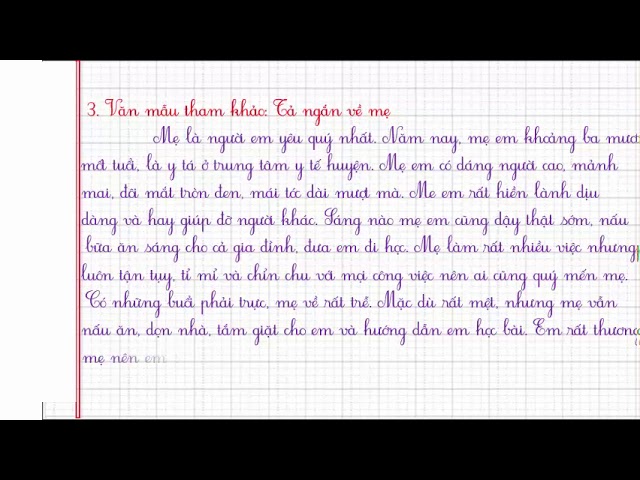 3. Văn mẫu tham khảo: Tả ngắn về mẹ
Mẹ là người em yêu quý nhất. Năm nay, mẹ em khoảng ba mươi
mốt tuổi, là y tá ở trung tâm y tế huyện. Mẹ em có dáng người cao, mảnh
mai, đôi mắt tròn đen, mái tóc dài mượt mà. Mẹ em rất hiền lành dịu
dàng và hay giúp đỡ người khác. Sáng nào mẹ em cũng dậy thật sớm, nấu
bữa ăn sáng cho cả gia đình, đưa em đi học. Mẹ làm rất nhiều việc nhưng
luôn tận tụy, tỉ mỉ và chỉn chu với mọi công việc nên ai cũng quý mến mẹ.
Có những buổi phải trực, mẹ về rất trễ. Mặc dù rất mệt, nhưng mẹ vẫn
nấu ăn, dọn nhà, tắm giặt cho em và hướng dẫn em học bài. Em rất thương
mẹ nên em